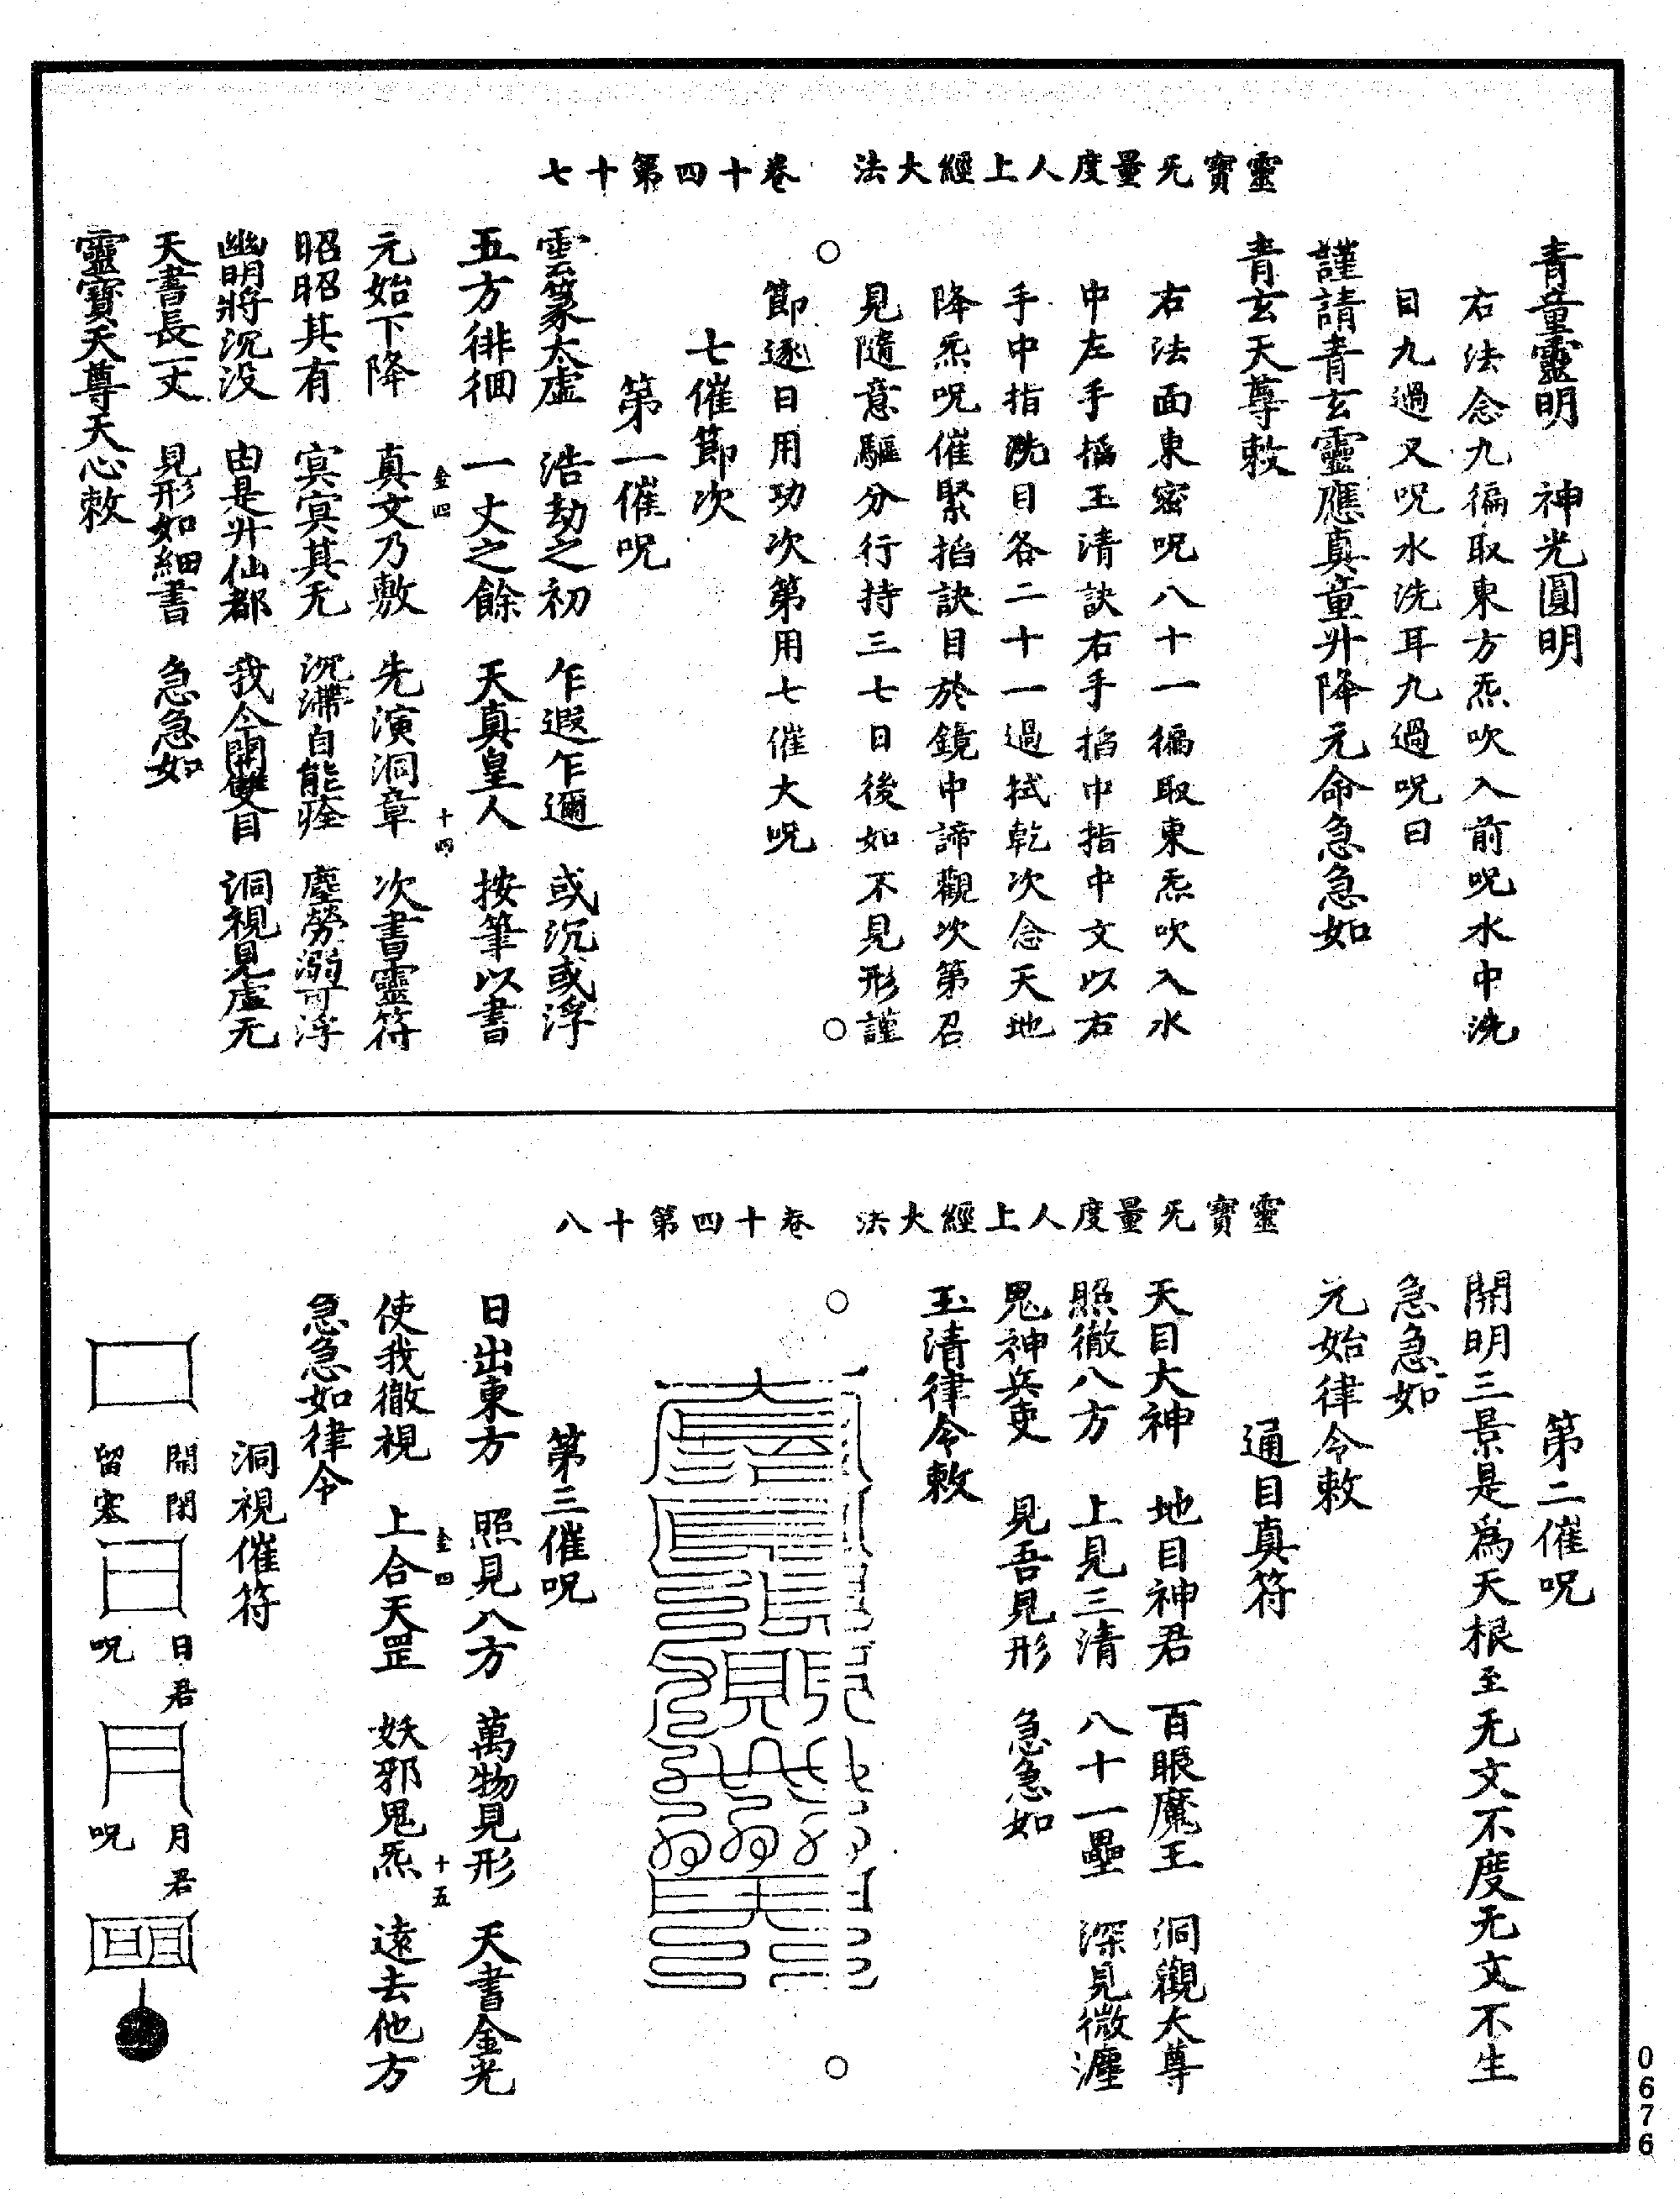 靈寶无量度人上經大法　卷十四第十七
青童靈明　神光圓明
右法念九徧取東方炁吹入前呪水中洗
目九過又呪水洗耳九過呪曰
謹請青玄靈應真童升降元命急急如
青玄天尊敕
右法面東密呪八十一徧取東炁吹入水
中左手搯玉清訣右手搯中指中文以右
手中指洗目各二十一過拭乾次念天地
降炁呪催緊搯訣目於鏡中諦觀次第召
見隨意驅分行持三七日後如不見形謹
節逐日用功次第用七催大呪
七催節次
第一催呪
雲篆太虛　浩劫之初　乍遐乍邇　或沉或浮
五方徘徊　一丈之餘　天真皇人　按筆以書
金四　十四
元始下降　真文乃敷　先演洞章　次書靈符
昭昭其有　冥冥其无　沉滯自能痊　塵勞溺可浮
幽明將沉没　由是升仙都　我今開雙目　洞視見虛无
天書長一丈　見形如細書　急急如
靈寶天尊天心敕
靈寶无量度人上經大法　卷十四第十八
第二催呪
開明三景是爲天根至无文不度无文不生
急急如
元始律令敕
通目真符
天目大神　地目神君　百眼魔王　洞觀大尊
照徹八方　上見三清　八十一壘　深見微塵
鬼神兵吏　見吾見形　急急如
玉清律令敕
第三催呪
日出東方　照見八方　萬物見形　天書金光
金四　十五
使我徹視　上合天罡　妖邪鬼炁　遠去他方
急急如律令
洞視催符
開閉
留塞
日君
呪
月君
呪
0676